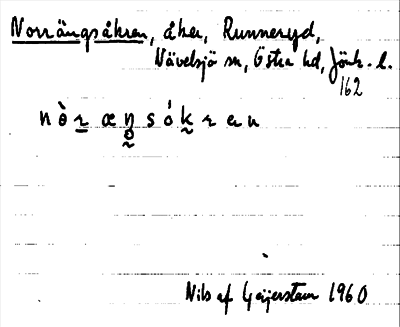 Norrängsåkren, åker, Runneryd,
Nävelsjö sn, Östra hd, Jönk. l.
162
nò̀r æŋsókren
Nils af Geijerstam 1960